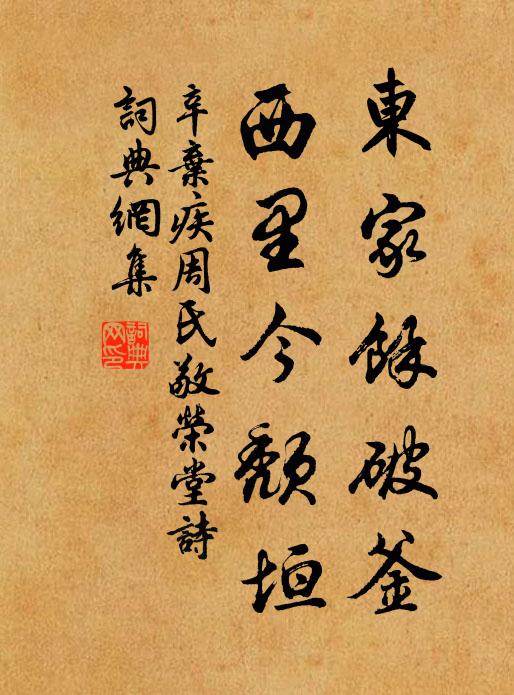 東家餘破釜
西里今頹垣
辛棄疾周氏敬榮堂詩
詞典網集
詞典網印